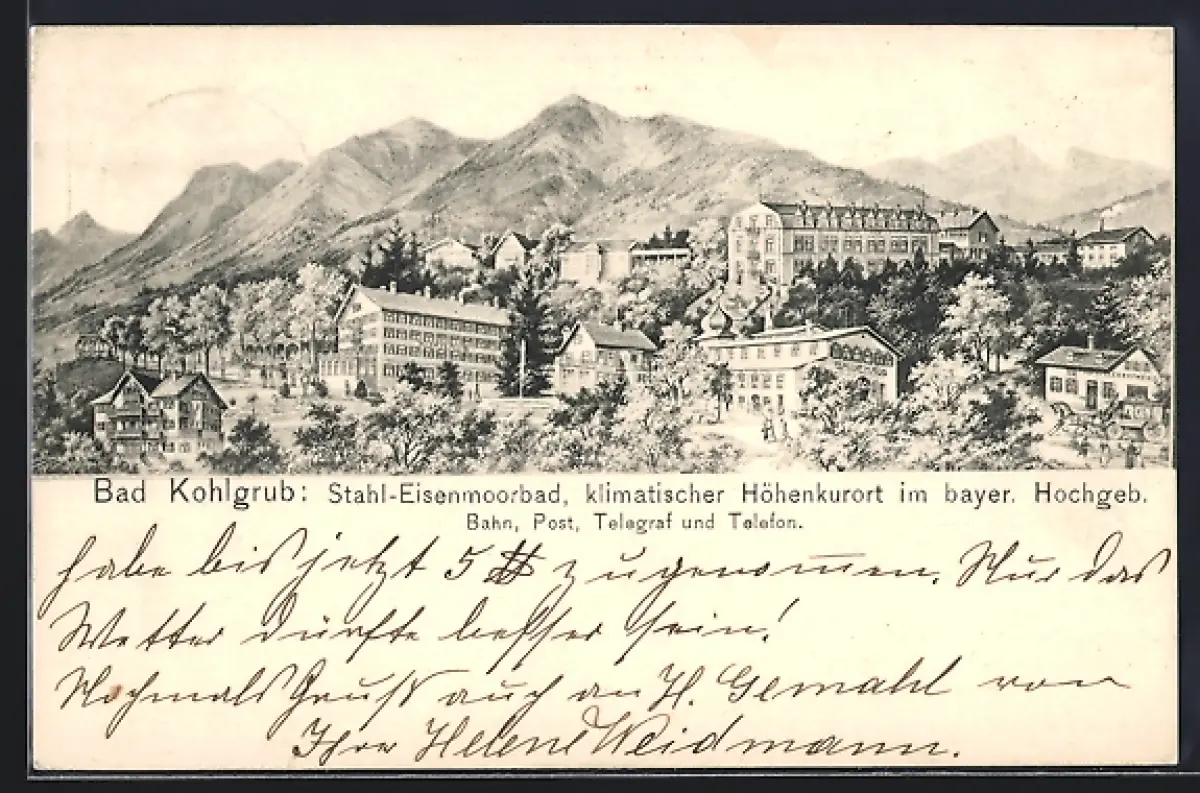 Bad Kohlgrub: Stahl-Eisenmoorbad, klimatischer Höhenkurort im bayer. Hochgeb.
Bahn, Post, Telegraf und Telefon.
habe bis jetzt 5 ℔ zugenom̅en. Nur das
Wetter dürfte besser sein!
Nochmals Gruß auch an H. Gemahl von
Ihrer Helene Weidmann.